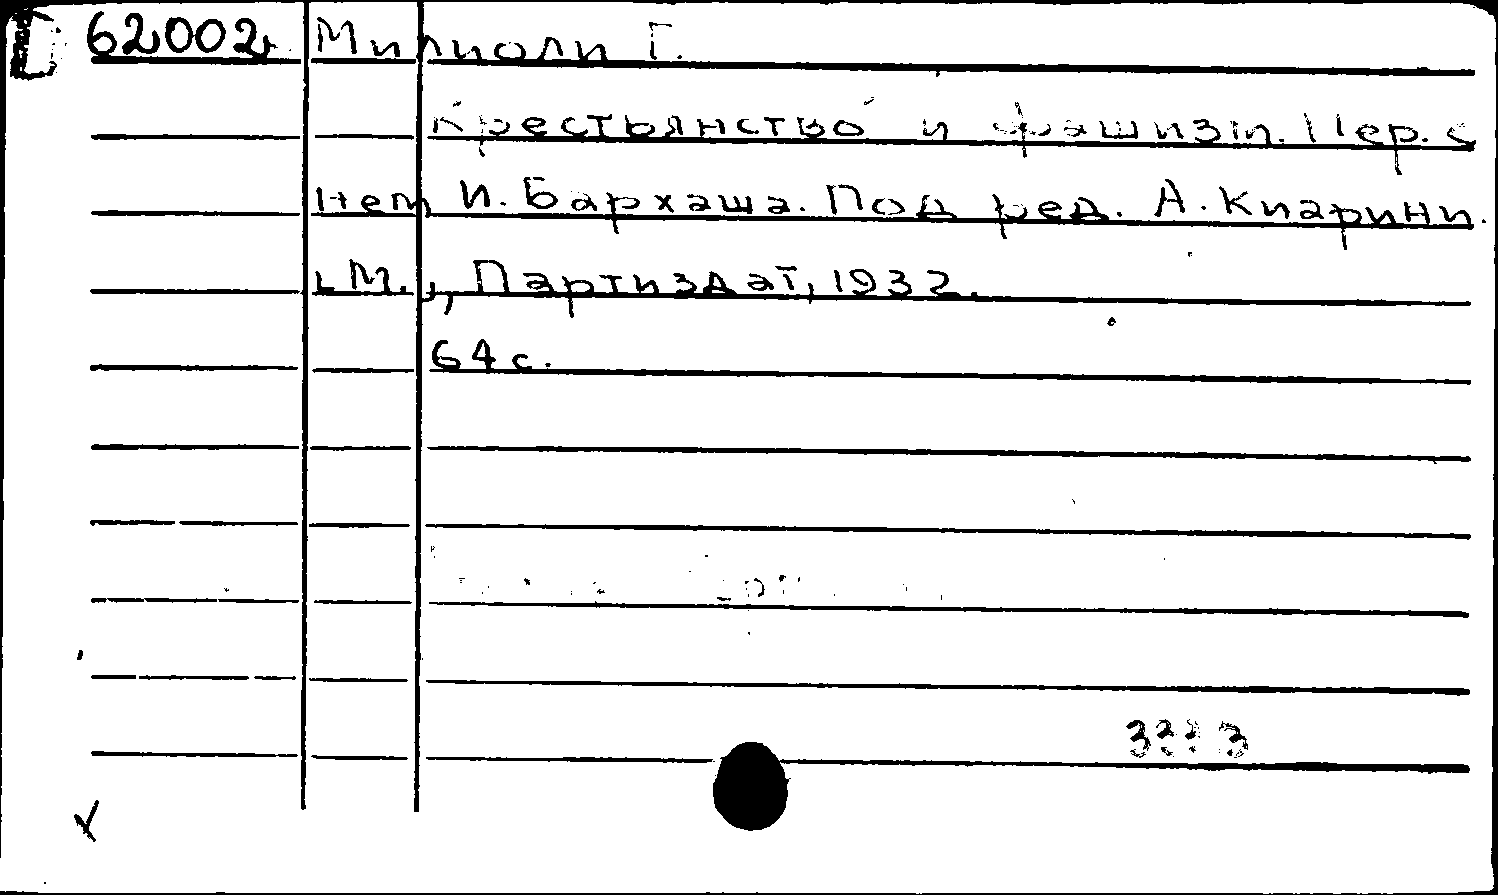 62002 Милиоли Г.
Крестьянство и фашизм. Пер. с
нем И. Бархаша. Под ред. А. Киарини.
М., Партиздат, 1932.
64 с.